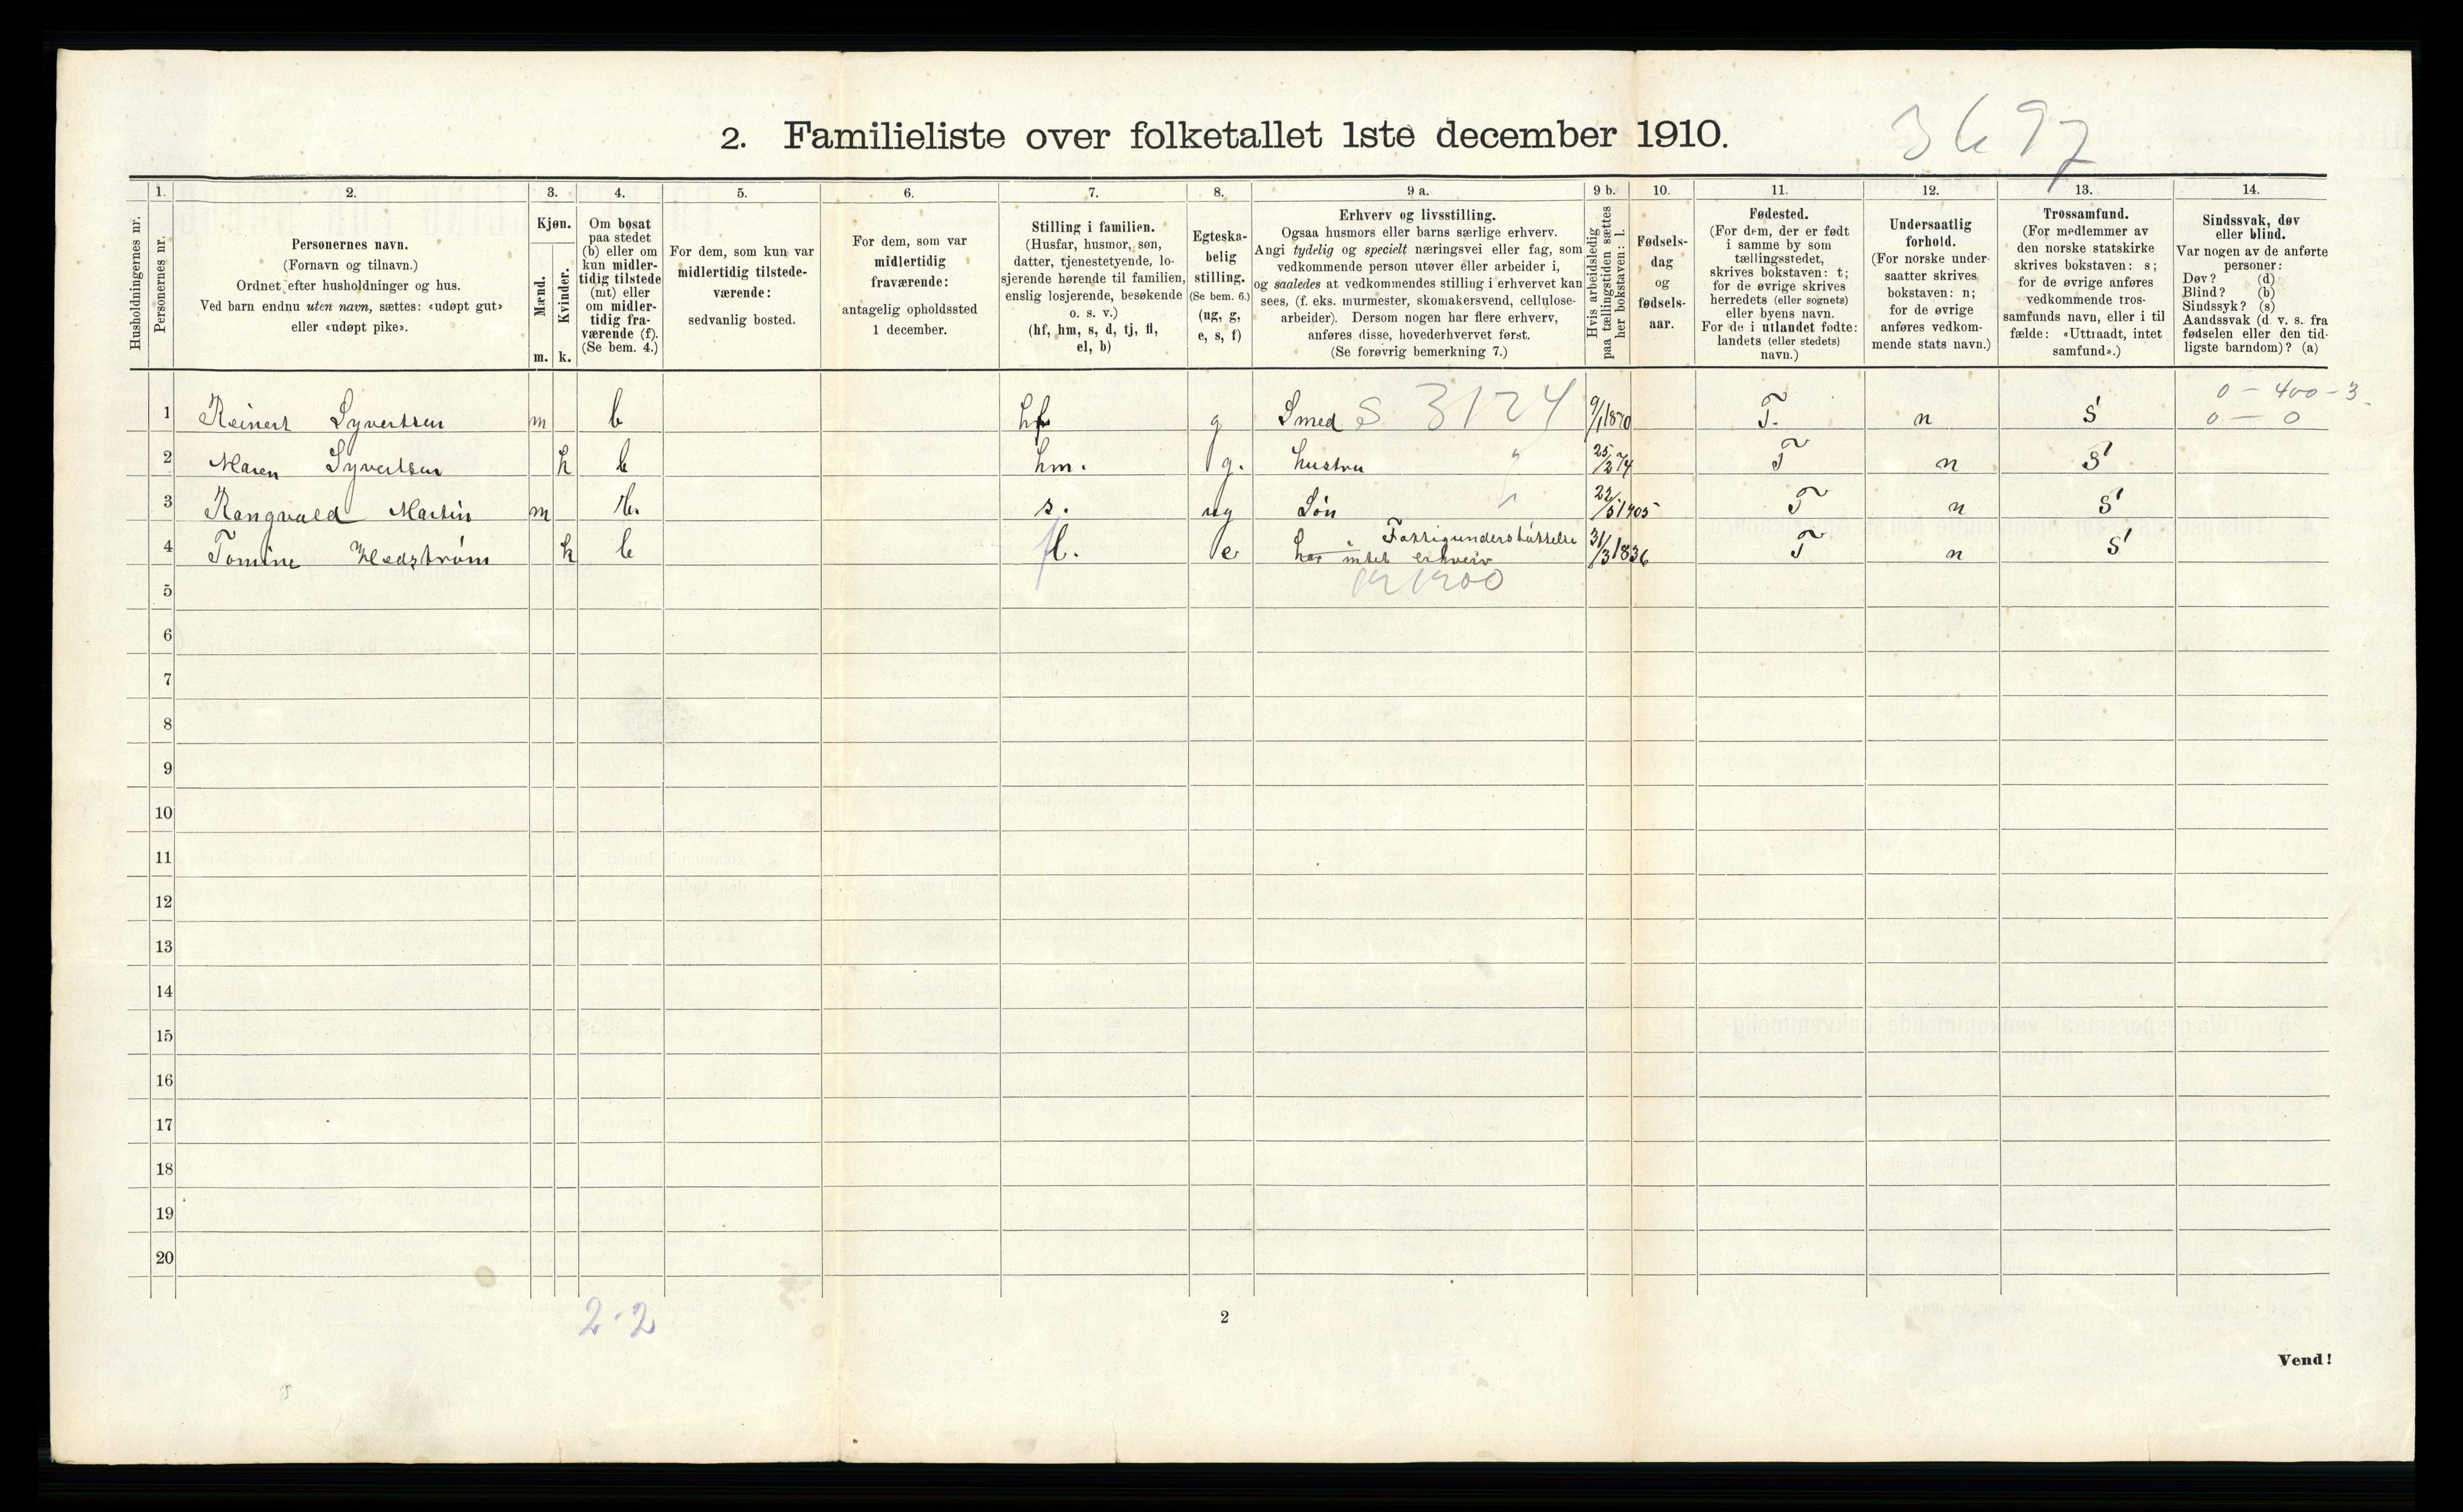 3697
2. Familieliste over folketallet 1ste december 1910.
Husholdningernes nr.
1.
Personernes nr.
2.
Personernes navn.
(Fornavn og tilnavn.)
Ordnet efter husholdninger og hus.
Ved barn endnu uten navn, sættes: «udøpt gut»
eller «udøpt pike».
3.
Kjøn.
Mænd.
Kvinder.
m. k.
4.
Om bosat
paa stedet
(b) eller om
kun midler-
tidig tilstede
(mt) eller
om midler-
tidig fra-
værende (f).
(Se bem. 4.)
5.
For dem, som kun var
midlertidig tilstede-
værende:
sedvanlig bosted.
6.
For dem, som var
midlertidig
fraværende:
antagelig opholdssted
1 december.
7.
Stilling i familien.
(Husfar, husmor, søn,
datter, tjenestetyende, lo-
sjerende hørende til familien,
enslig losjerende, besøkende
o. s. v.)
(hf, hm, s, d, tj, fl,
el, b)
8.
Egteska-
belig
stilling.
(Se bem. 6.)
(ug, g,
e, s, f)
9 a.
Erhverv og livsstilling.
Ogsaa husmors eller barns særlige erhverv.
Angi tydelig og specielt næringsvei eller fag, som
vedkommende person utøver eller arbeider i,
og saaledes at vedkommendes stilling i erhvervet kan
sees, (f. eks. murmester, skomakersvend, cellulose-
arbeider). Dersom nogen har flere erhverv,
anføres disse, hovederhvervet først.
(Se forøvrig bemerkning 7.)
9 b.
Hvis arbeidsledig
paa tællingstiden sættes
her bokstaven: l.
10.
Fødsels-
dag
og
fødsels-
aar.
11.
Fødested.
(For dem, der er født
i samme by som
tællingsstedet,
skrives bokstaven: t;
for de øvrige skrives
herredets (eller sognets)
eller byens navn.
For de i utlandet fødte:
landets (eller stedets)
navn.)
12.
Undersaatlig
forhold.
(For norske under-
saatter skrives
bokstaven: n;
for de øvrige
anføres vedkom-
mende stats navn.)
13.
Trossamfund.
(For medlemmer av
den norske statskirke
skrives bokstaven: s;
for de øvrige anføres
vedkommende tros-
samfunds navn, eller i til
fælde: «Uttraadt, intet
samfund».)
14.
Sindssvak, døv
eller blind.
Var nogen av de anførte
personer:
Døv? (d)
Blind? (b)
Sindssyk? (s)
Aandssvak (d. v. s. fra
fødselen eller den tid-
ligste barndom)? (a)
0 - 400 - 3
1 Reinert Syvertsen m b hf g Smed S 3124 9/1 1870 T. n S 0 - 0
2 Maren Syvertsen k b hm. g. hustru " 25/2 74 T n S
3 Rangvald Martin m b. s. ug Søn " 22/5 1905 T n S
Fattigunderstøttelse
4 Tomine Hedstrøm k b fl. e har intet erhverv 31/3 1836 T n S
5
6
7
8
9
10
11
12
13
14
15
16
17
18
19
20
2-2
2
Vend!